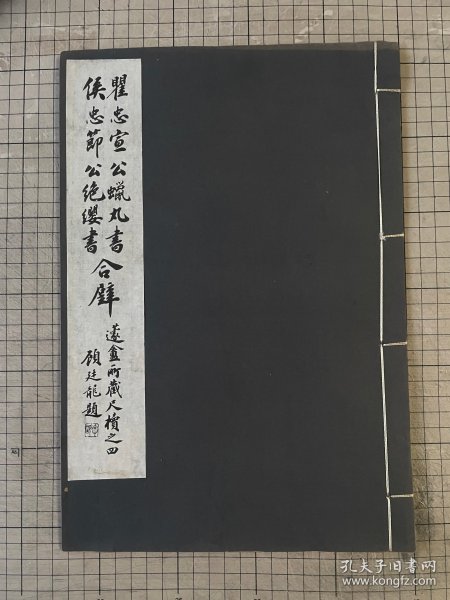 瞿忠宣公蠟丸書
侯忠節公絶纓書
合璧
邃盦所藏尺牘之四
顧廷龍題
孔夫子旧书网
www.kongfz.com